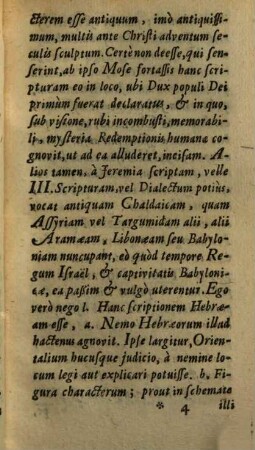 cterem esse antiquum, imò antiquissi-
mum, multis ante Christi adventum se-
culis sculptum. Certè non deesse, qui sen-
serint, ab ipso Mose fortassis hanc scri-
pturam eo in loco, ubi Dux populi Dei
primùm fuerat declaratus, & in quo,
sub visione, rubi incombusti, memorabi-
li, mysteria Redemptionis humanæ co-
gnovit, ut ad ea alluderet, incisam. A-
lios tamen, à Jeremia scriptam, velle
III. Scripturam, vel Dialectum potius,
vocat antiquam Chaldaicam, quam
Assyriam vel Targumidam alii, alii
Aramæam, Libonæam seu Babylo-
niam nuncupant, eò quòd tempore Re-
gum Israël, & captivitatis Babyloni-
cæ, ea passim & vulgò uterentur. Ego
verò nego I. Hanc scriptionem Hebræ-
am esse, a. Nemo Hebræorum illud
hactenus agnovit. Ipse largitur, Orien-
talium hucusque judicio, à nemine lo-
cum legi aut explicari potuisse. b. Fi-
gura characterum; prout in schemate
* 4 illi